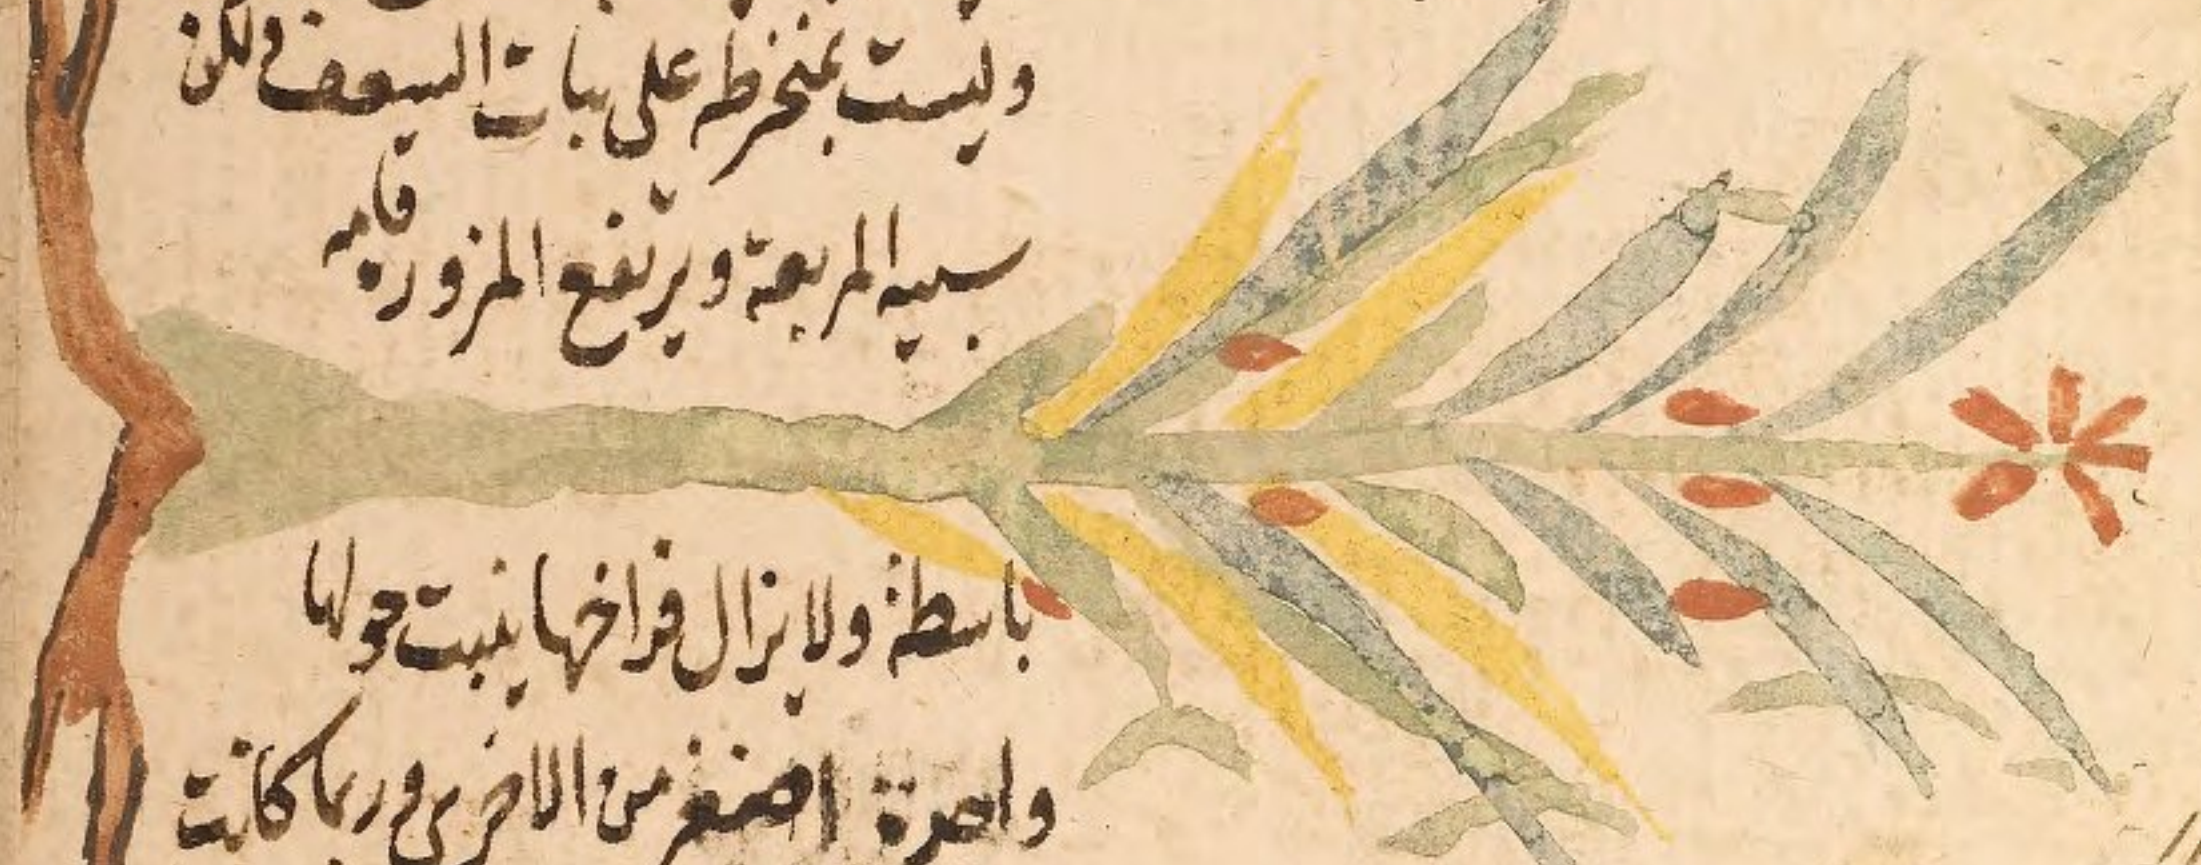 وليست بمنخرطه على نبات السعف ولكن
سبيه المربعة ويرتفع المزور قامه
باسطة ولا يزال فراخها ينبت حولها
واحدة اصغر من الاخرى وربما كانت